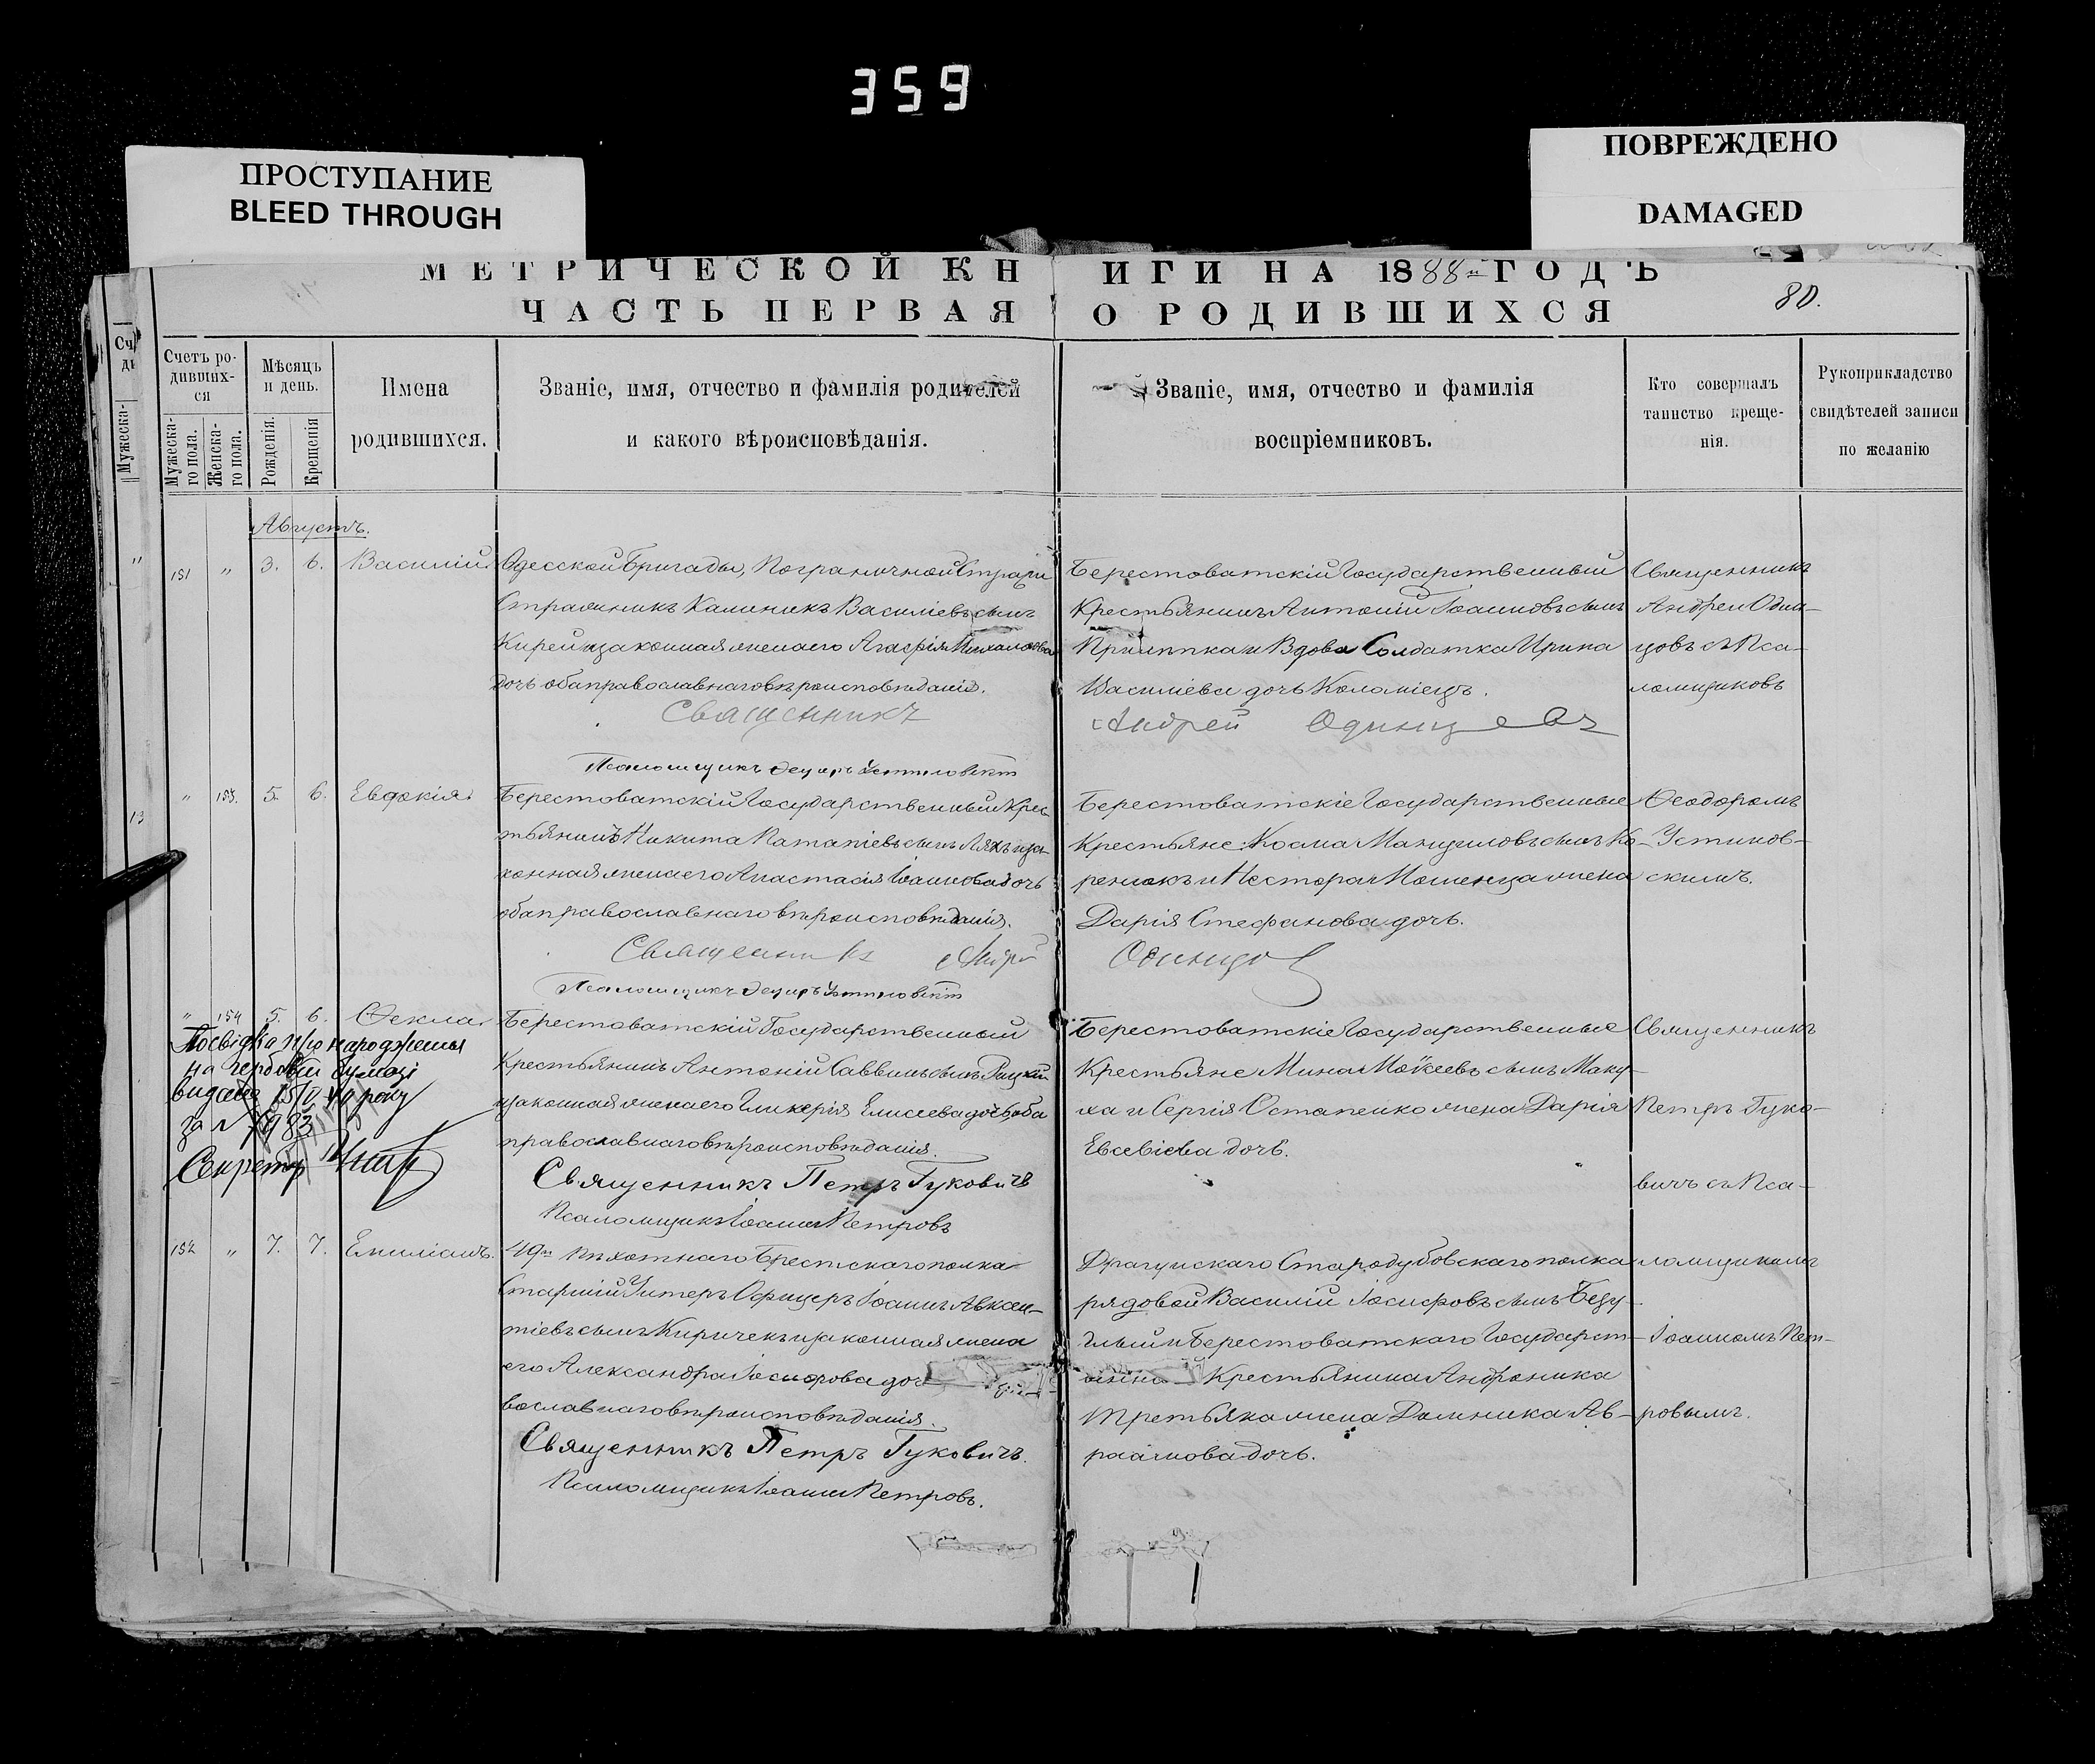 359
ПРОСТУПАНИЕ
BLEED THROUGH
ПОВРЕЖДЕНО
DAMAGED
МЕТРИЧЕСКОЙ КН
ЧАСТЬ ПЕРВАЯ
ИГИ НА 1888 ГОДЪ
О РОДИВШИХСЯ
80.
Мужеска-
Счетъ ро-
дивших-
ся
Мужеска-
го пола.
Женска-
го пола.
Мѣсяцъ
и день.
Рожденія.
Крещенія
Имена
родившихся.
Званіе, имя, отчество и фамилія родителей
и какого вѣроисповѣданія.
Званіе, имя, отчество и фамилія
воспріемниковъ.
Кто совершалъ
таинство креще-
нія.
Рукоприкладство
свидѣтелей записи
по желанію
Августъ.
151 " 3. 6. Василій.
Одесской Бригады, Пограничной Стражи
Стражникъ Калиникъ Василіевъ сынъ
Кирей и законная жена его Агафія Михайлова
дочь оба православнаго вѣроисповѣданія.
Священникъ
Берестоватскій Государственный
Крестьянинъ Антоній Іоанновъ сынъ
и Вдова Солдатка Ирина
Василіева дочь Коломіецъ.
Андрей Одинцовъ
Священникъ
Андрей Один-
цовъ съ Пса-
ломщиковъ
Псаломщикъ
" 153. 5. 6. Евдокія.
Берестоватскій Государственный Крес-
тьянинъ Никита Патапіевъ сынъ Ляхъ и за-
конная жена его Анастасія Іоаннова дочь
оба православнаго вѣроисповѣданія.
Священникъ Андрей
Берестоватскіе Государственные
Крестьяне: Косма сынъ Ко-
ренюкъ и Нестора жена
Дарія Стефанова дочь.
Одинцов
Ѳеодоромъ
Устинов-
скимъ.
Псаломщикъ
" 154 5. 6. Ѳекла.
Посвідка про народження
на гербовій бумазі
видана
за № 7983
Секретар
Берестоватскій Государственный
Крестьянинъ Антоній Саввинъ сынъ
законная жена его Гликерія Елисеева дочь оба
православнаго вѣроисповѣданія.
Священникъ Петръ Гуковичъ
Псаломщикъ Іоаннъ Петровъ
Берестоватскіе Государственные
Крестьяне Мина Моѵсеевъ сынъ Маку-
ха и Сергія Остапенко жена Дарія
Евсевіева дочь.
Священникъ
Петръ Гуко-
вичъ съ Пса-
152 " 7. 7. Емиліанъ.
49го пѣхотнаго Брестскаго полка
Старшій Унтеръ Офицеръ Іоаннъ Авксен-
тіевъ сынъ Киричекъ и законная жена
его Александра Іосифова доч
вославнаго вѣроисповѣданія.
Священникъ Петръ Гуковичъ.
Псаломщикъ Іоаннъ Петровъ.
Драгунскаго Стародубовскаго полка
рядовой Василій Іосифовъ сынъ Безу-
глый и Берестоватскаго Государст-
Крестьянина Андроника
Третьяка жена Домника Ав-
раамова дочь.
ломщикомъ
Іоанномъ Пет-
ровымъ.